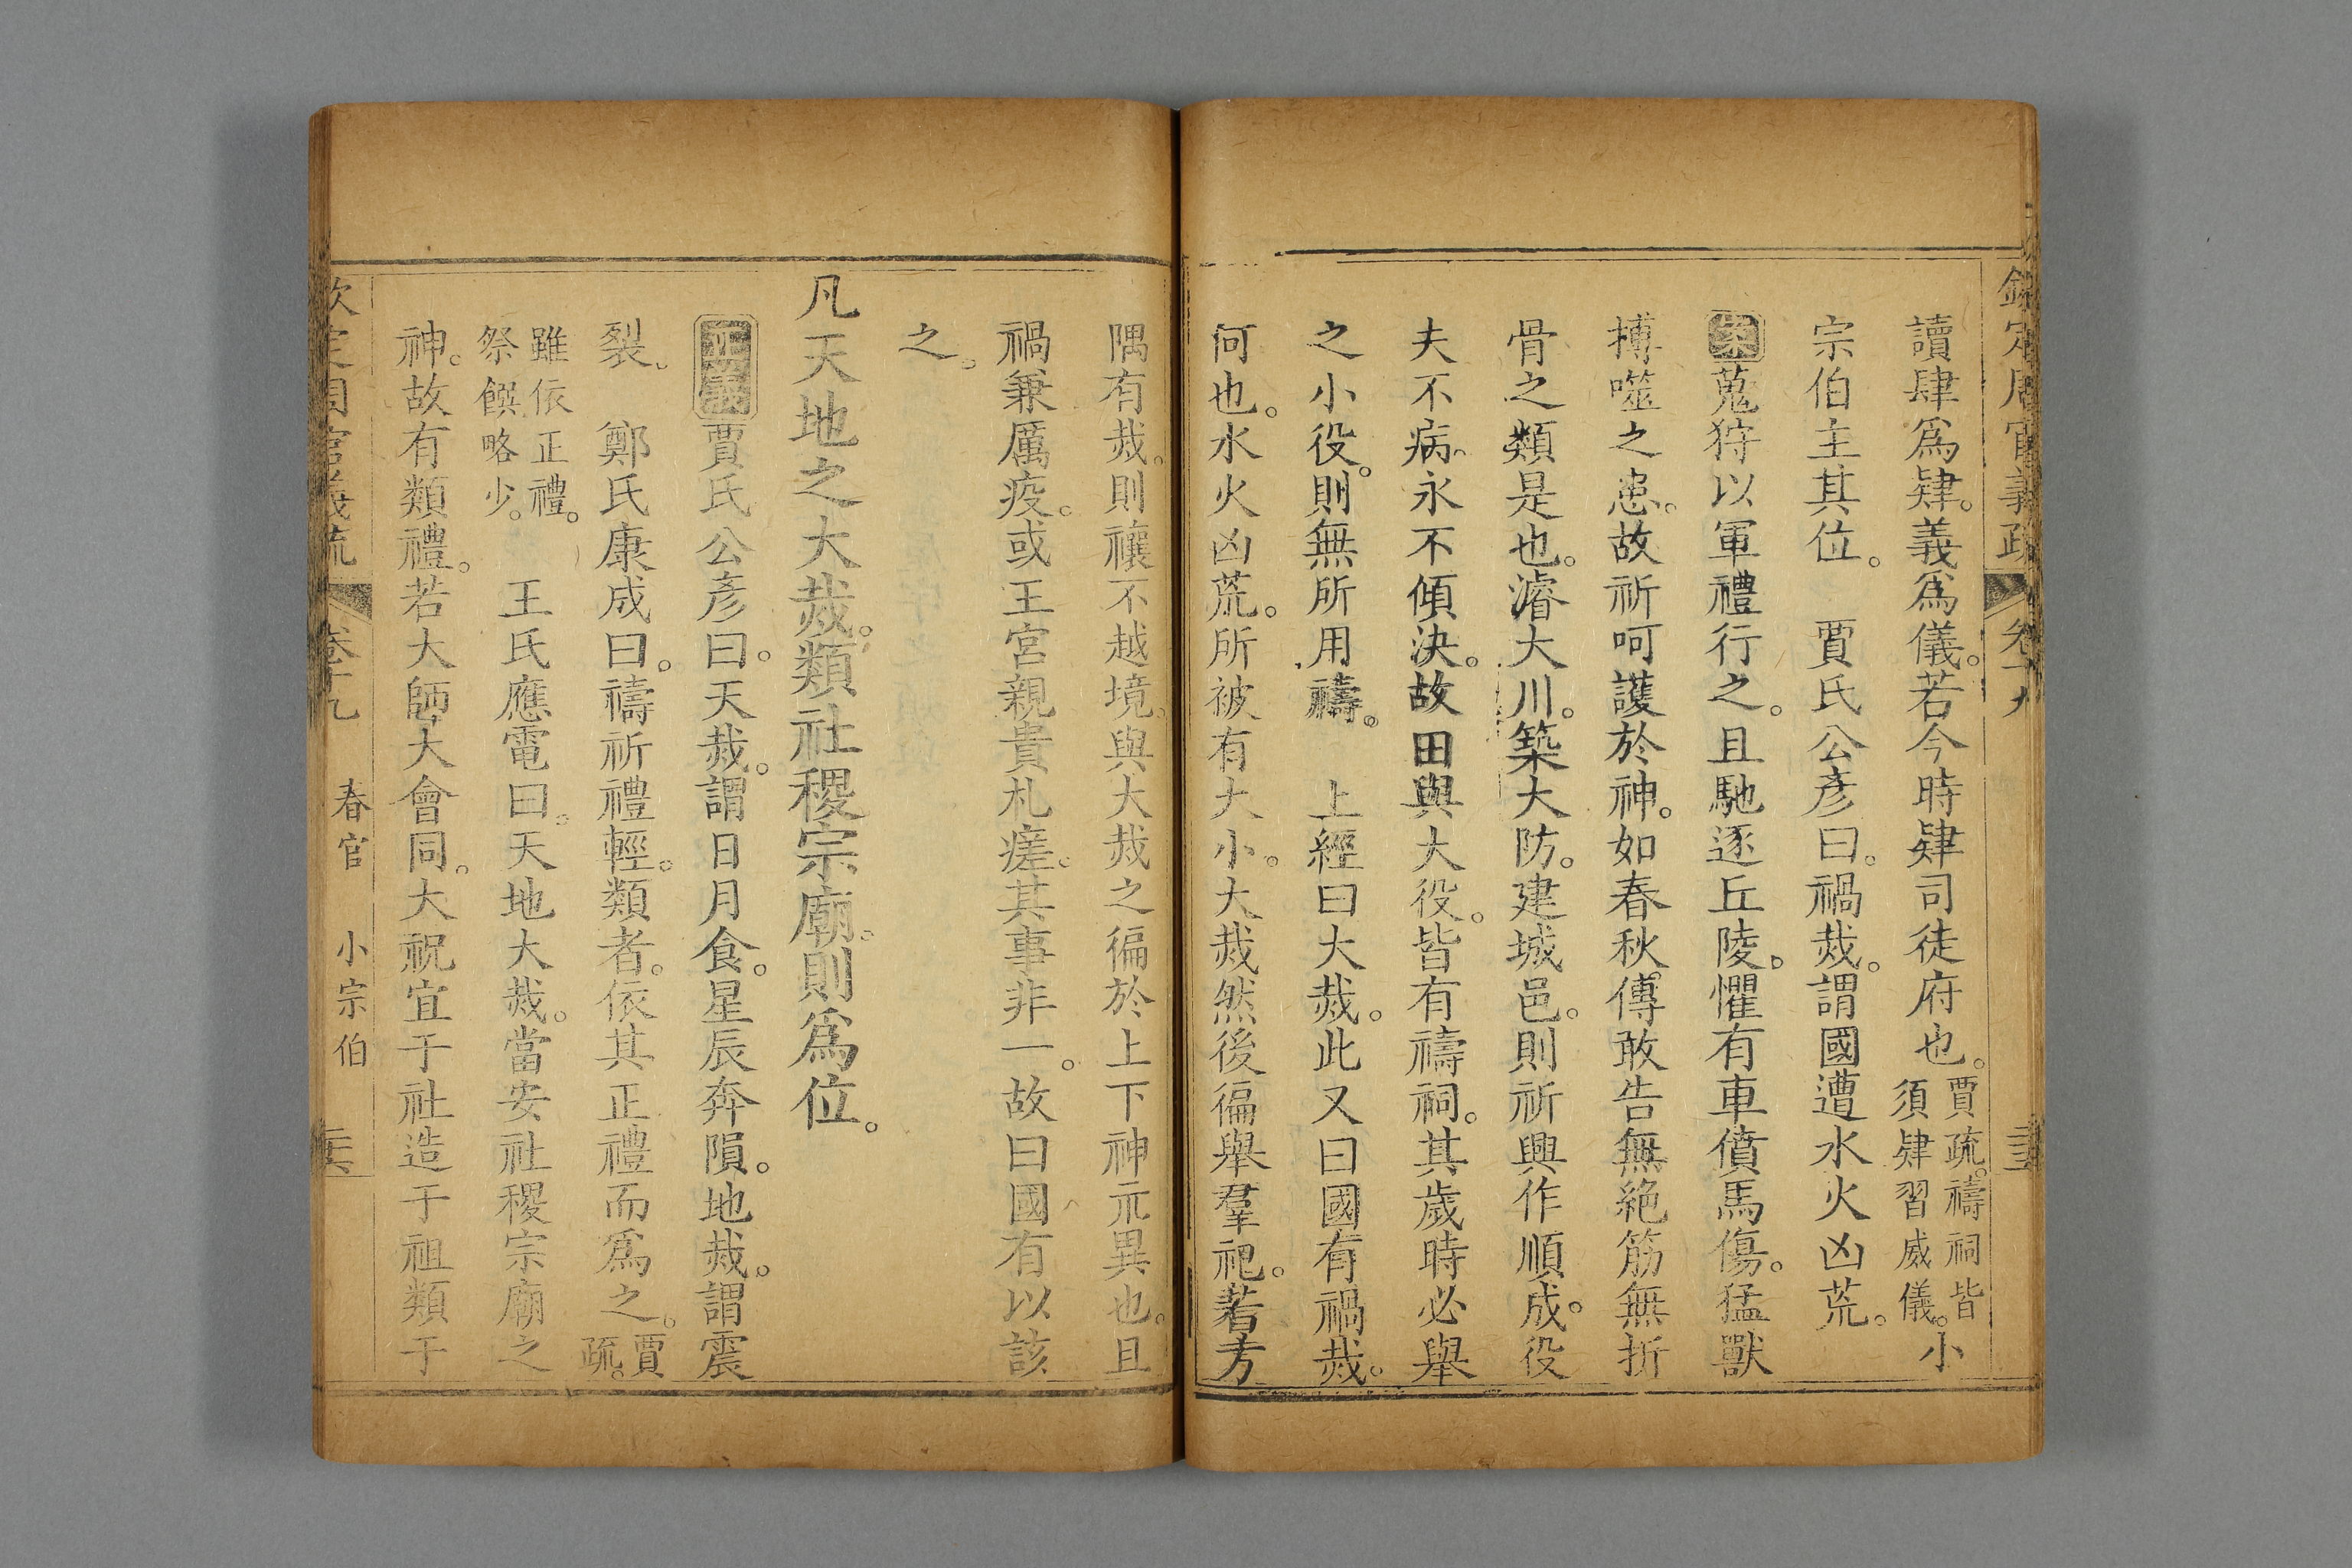 欽定周官義疏 卷十九
讀肆爲肄。義爲儀。若今時肄司徒府也。賈疏。禱祠皆須肄習威儀。小
宗伯主其位。 賈氏公彥曰。禍烖。謂國遭水火凶荒。
案蒐狩以軍禮行之。且馳逐丘陵。懼有車僨馬傷。猛獸
搏噬之患。故祈呵護於神。如春秋傳敢告無絶筋無折
骨之類是也。濬大川。築大防。建城邑。則祈興作順成。役
夫不病。永不傾決。故田與大役。皆有禱祠。其歲時必舉
之小役。則無所用禱。 上經曰大烖。此又曰國有禍烖。
何也。水火凶荒。所被有大小。大烖然後徧舉羣祀。若方
隅有烖。則禳不越境。與大烖之徧於上下神示異也。且
禍兼厲疫。或王宮親貴札瘥。其事非一。故曰國有以該
之。
凡天地之大烖。類社稷宗廟。則爲位。
正義賈氏公彥曰。天烖。謂日月食。星辰奔隕。地烖。謂震
裂。 鄭氏康成曰。禱祈禮輕。類者。依其正禮而爲之。賈疏。
雖依正禮。祭饌略少。 王氏應電曰。天地大烖。當安社稷宗廟之
神。故有類禮。若大師大會同。大祝宜于社造于祖類于
欽定周官義疏 卷十九 春官 小宗伯